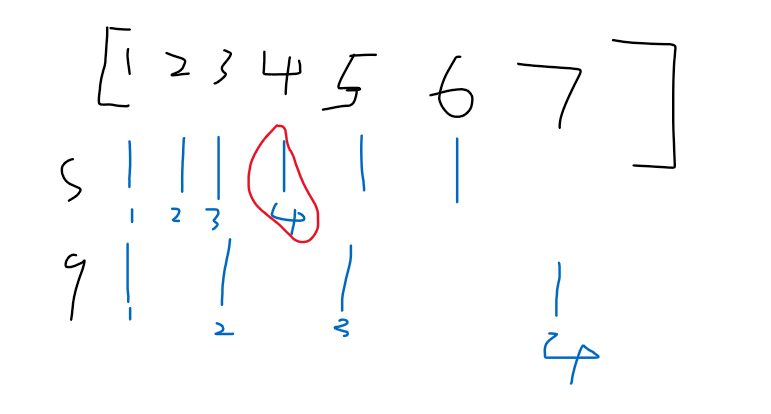 [1 2 3 4 5 6 7]
S
1 2 3 4
q
1 2 3 4